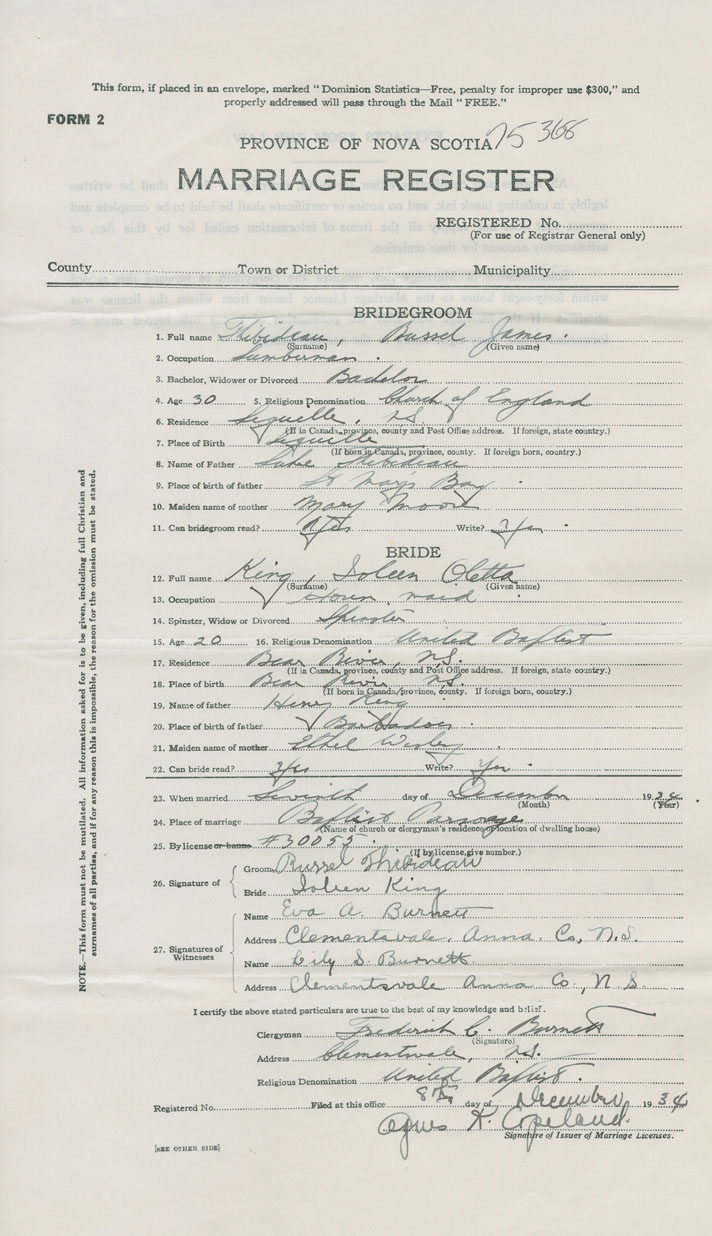 This form, if placed in an envelope, marked "Dominion Statistics—Free, penalty for improper use $300," and
properly addressed will pass through the Mail "FREE."
FORM 2
75 368
PROVINCE OF NOVA SCOTIA
MARRIAGE REGISTER
REGISTERED No.
(For use of Registrar General only)
County Town or District Municipality
BRIDEGROOM
1. Full name Thibideau, Russel James.
(Surname) (Given name)
2. Occupation Lumberman.
3. Bachelor, Widower or Divorced Bachelor
4. Age 30 5. Religious Denomination Church of England
6. Residence N.S.
(If in Canada, province, county and Post Office address. If foreign, state country.)
7. Place of Birth
(If born in Canada, province, county. If foreign born, country.)
8. Name of Father Thibideau
9. Place of birth of father St Marys Bay
10. Maiden name of mother Mary Moore
11. Can bridegroom read? Yes Write? Yes
BRIDE
12. Full name King, Ioleen Oletta
(Surname) (Given name)
13. Occupation maid
14. Spinster, Widow or Divorced Spinster
15. Age 20 16. Religious Denomination United Baptist
17. Residence Bear River, N.S.
(If in Canada, province, county and Post Office address. If foreign, state country.)
18. Place of birth Bear River N.S.
(If born in Canada, province, county. If foreign born, country.)
19. Name of father Henry King
20. Place of birth of father Barbadoes
21. Maiden name of mother Ethel Wesley
22. Can bride read? Yes Write? Yes
23. When married Seventh day of December 1934
(Month) (Year)
24. Place of marriage Baptist Parsonage
(Name of church or clergyman's residence, or location of dwelling house)
25. By license or banns #30055.
(If by license, give number.)
26. Signature of
Groom Russel Thibideau
Bride Ioleen King
27. Signatures of Witnesses
Name Eva A. Burnett
Address Clementsvale, Anna. Co, N.S.
Name Lily S. Burnett
Address Clementsvale Anna Co., N S.
I certify the above stated particulars are true to the best of my knowledge and belief.
Clergyman Frederick C. Burnett
(Signature)
Address Clementsvale, N.S.
Religious Denomination United Baptist.
Registered No. Filed at this office 8th day of December 1934
Agnes K. Copeland.
Signature of Issuer of Marriage Licenses.
[SEE OTHER SIDE]
NOTE.—This form must not be mutilated. All information asked for is to be given, including full Christian and
surnames of all parties, and if for any reason this is impossible, the reason for the omission must be stated.